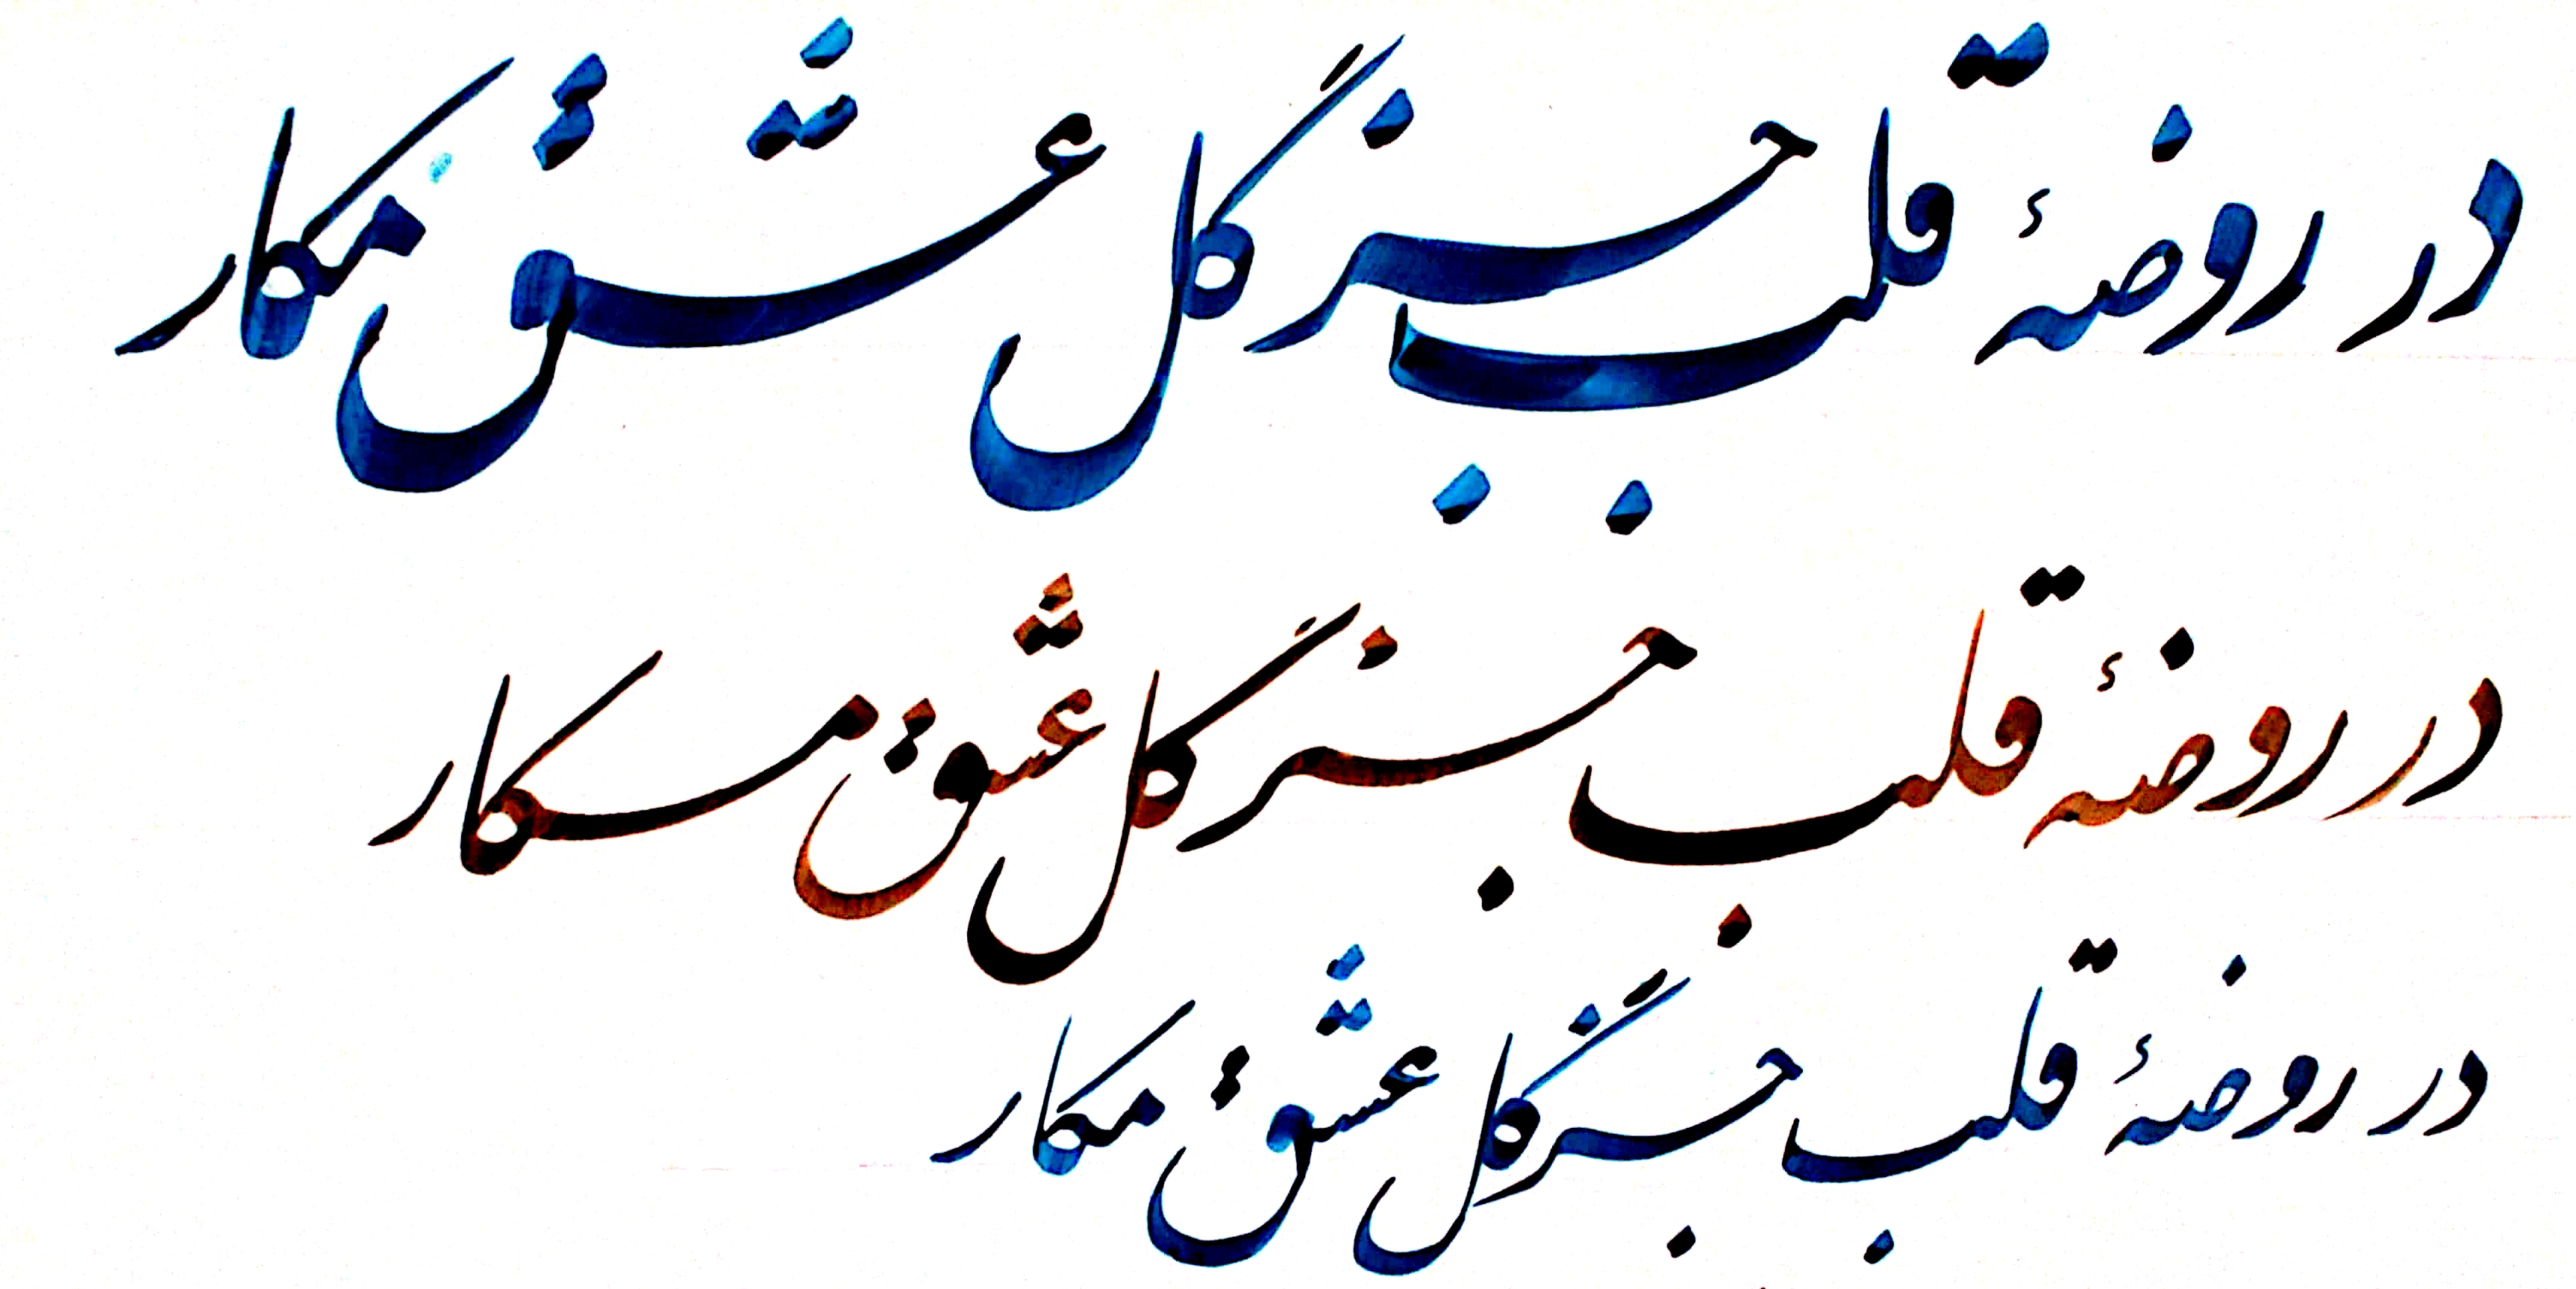 در روضهٔ قلب جز گل عشق مکار
در روضهٔ قلب جز گل عشق مکار
در روضهٔ قلب جز گل عشق مکار